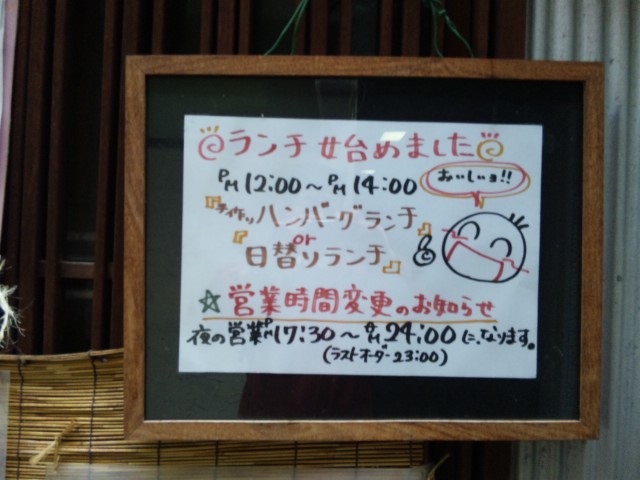 ランチ始めました
PM12:00～PM14:00
おいしいョ!!
『手作りハンバーグランチ』
or
『日替りランチ』
☆営業時間変更のお知らせ
夜の営業PM17:30～AM24:00に、なります。
(ラストオーダー23:00)